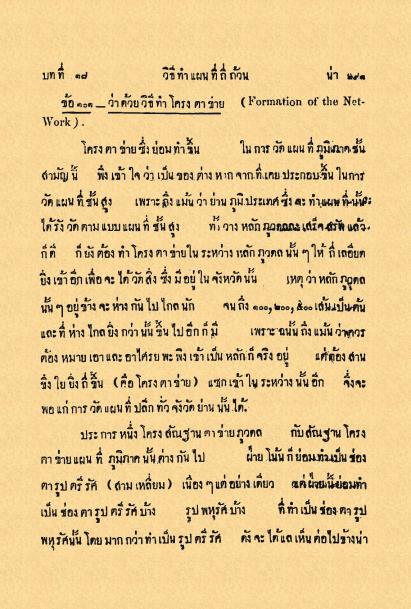 บทที่ ๑๗ วิธีทำแผนที่ถี่ถ้วน น่า ๒๙๑
ข้อ ๑๐๑ — ว่าด้วยวิธีทำโครงตาข่าย (Formation of the Net-
Work).
โครงตาข่ายซึ่งย่อมทำขึ้น ในการวัดแผนที่ภูมิภาคชั้น
สามัญนี้ พึงเข้าใจว่าเป็นของต่างหากจากที่เคยประกอบขึ้นในการ
วัดแผนที่ชั้นสูง เพราะถึงแม้นว่าย่านภูมิประเทศซึ่งจะทำแผนที่นั้นจะ
ได้รังวัดตามแบบแผนที่ชั้นสูง ทั้วางหลักภูวดล เสร็จสรัพแล้ว
ก็ดี ก็ยังต้องทำโครงตาข่ายในระหว่างหลักภูวดลนั้นๆให้ถี่เลอียด
ยิ่งเข้าอีกเพื่อจะได้วัดสิ่งซึ่งมีอยู่ในจังหวัดนั้น เหตุว่าหลักภูวดล
นั้นๆอยู่ข้างจะห่างกันไปไกลนัก จนถึง ๑๐๐, ๒๐๐, ๕๐๐ เส้นเป็นต้น
และที่ห่างไกลยิ่งกว่านั้นขึ้นไปอีกก็มี เพราะฉนั้นถึงแม้นว่าควร
ต้องหมายเอาและอาไศรยพะพึงเข้าเป็นหลักก็จริงอยู่ แต่ต้องสาน
ขึงใยยิ่งถี่ขึ้น (คือโครงตาข่าย) แซกเข้าในระหว่างนั้นอีก จึ่งจะ
พอแก่การวัดแผนที่ปลีกทั่วจังวัดย่านนั้นได้.
ประการหนึ่งโครงสัณฐานตาข่ายภูวดล กับสัณฐานโครง
ตาข่ายแผนที่ภูมิภาคนั้นต่างกันไป ฝ่ายโน้นก็ย่อมทำเป็นช่อง
ตารูปตรีรัศ (สามเหลี่ยม) เนื่องๆแต่อย่างเดียว แต่ฝ่ายนี้ย่อมทำ
เป็นช่องตารูปตรีรัศบ้าง รูปพหุรัศบ้าง ที่ทำเป็นช่องตารูป
พหุรัศนั้นโดยมากกว่าทำเป็นรูปตรีรัศ ดังจะได้แลเห็นต่อไปข้างน่า